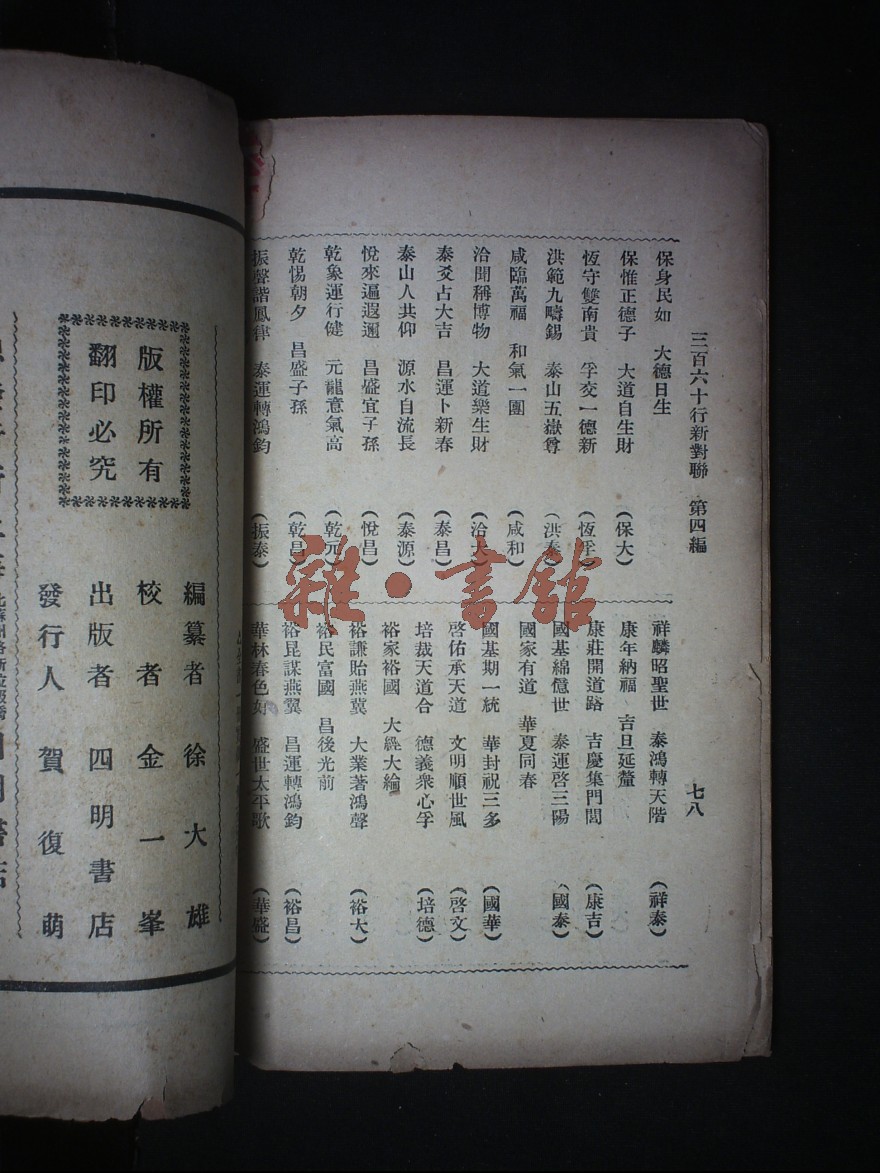 三百六十行新對聯 第四編 七八
保身民如 大德日生
保惟正德子 大道自生財 (保大)
恆守雙南貴 孚交一德新 (恆孚)
洪範九疇錫 泰山五嶽尊 (洪泰)
咸臨萬福 和氣一團 (咸和)
洽聞稱博物 大道樂生財 (洽大)
泰爻占大吉 昌運卜新春 (泰昌)
泰山人共仰 源水自流長 (泰源)
悅來遍遐邇 昌盛宜子孫 (悅昌)
乾象運行健 元龍意氣高 (乾元)
乾惕朝夕 昌盛子孫 (乾昌)
振聲諧鳳律 泰運轉鴻鈞 (振泰)
祥麟昭聖世 泰鴻轉天階 (祥泰)
康年納福 吉旦延釐
康莊開道路 吉慶集門閭 (康吉)
國基綿億世 泰運啓三陽 (國泰)
國家有道 華夏同春
國基期一統 華封祝三多 (國華)
啓佑承天道 文明順世風 (啓文)
培裁天道合 德義衆心孚 (培德)
裕家裕國 大經大綸
裕謙貽燕冀 大業著鴻聲 (裕大)
裕民富國 昌後光前
裕昆謀燕翼 昌運轉鴻鈞 (裕昌)
華林春色好 盛世太平歌 (華盛)
雜·書館
版權所有
翻印必究
編纂者 徐大雄
校者 金一峯
出版者 四明書店
發行人 賀復萌